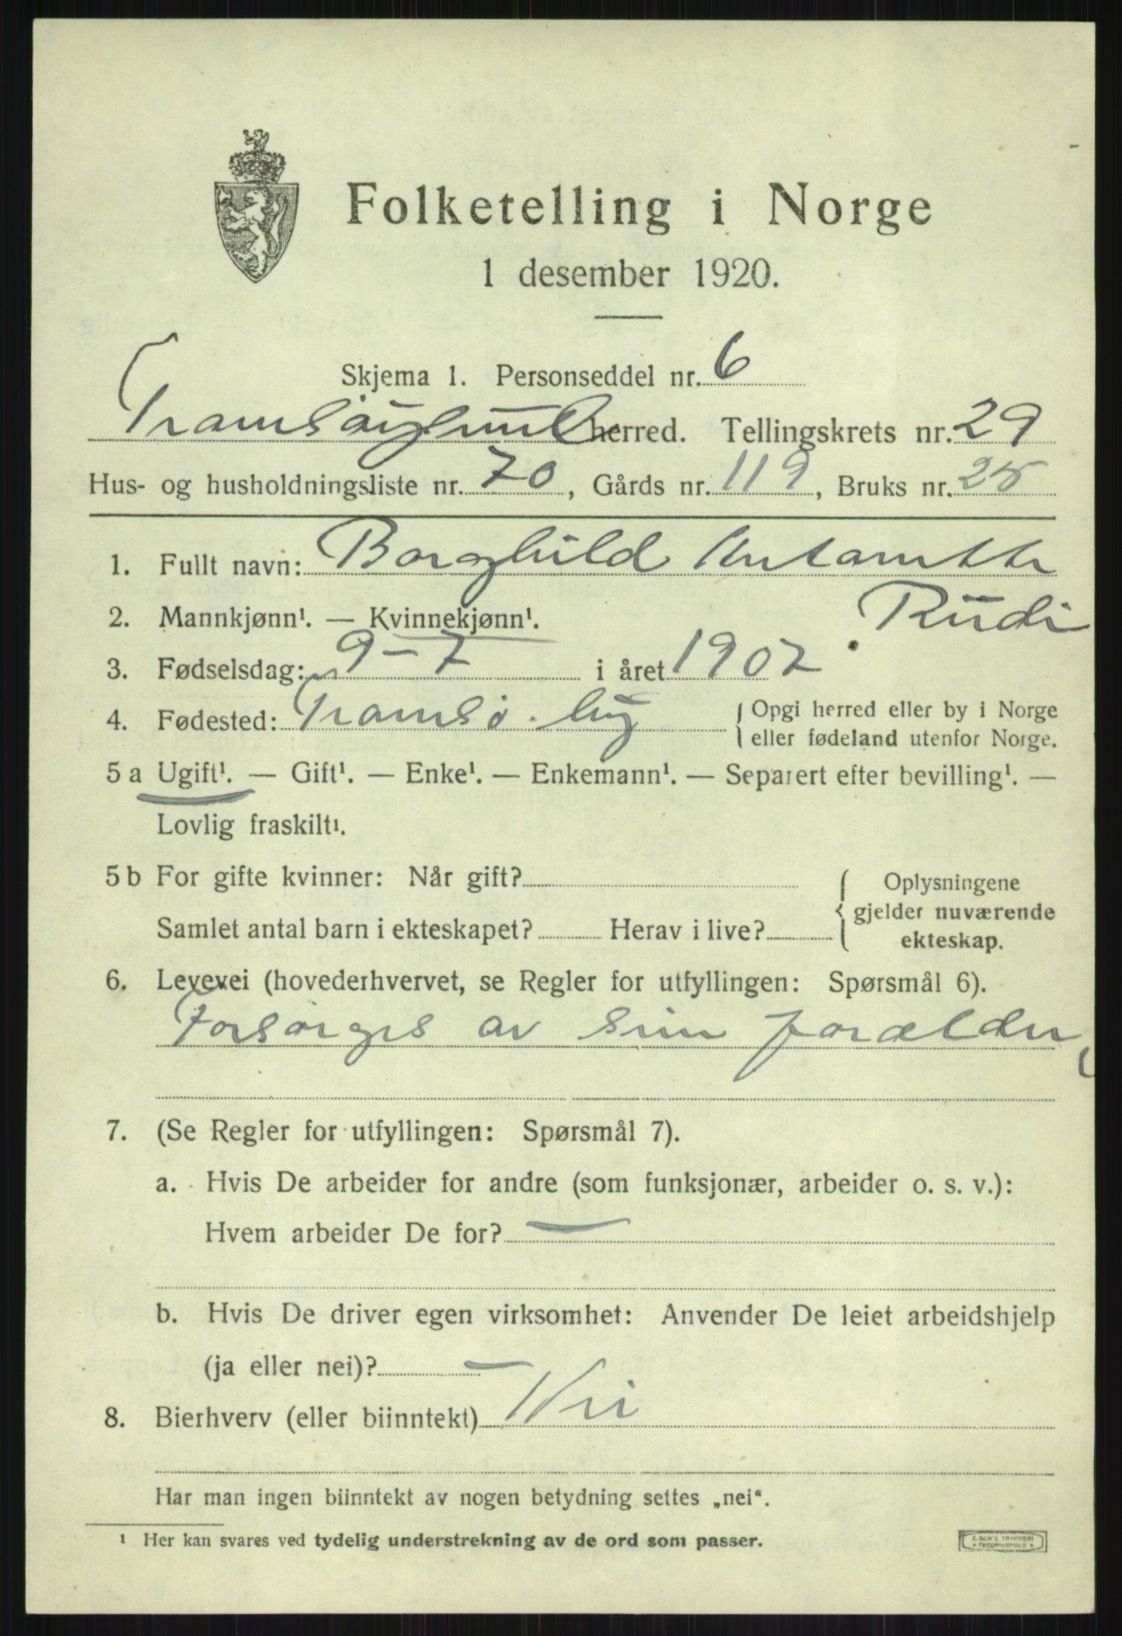 Folketelling i Norge
1 desember 1920.
Skjema 1. Personseddel nr. 6
Tromsøysund herred. Tellingskrets nr. 29
Hus- og husholdningsliste nr. 70, Gårds nr. 119, Bruks nr. 25
1. Fullt navn: Borghild Antonette
Rudi
2. Mannkjønn¹. — Kvinnekjønn¹.
3. Fødselsdag: 9-7 i året 1902
4. Fødested: Tromsø by
{ Opgi herred eller by i Norge
eller fødeland utenfor Norge.
5 a Ugift¹. — Gift¹. — Enke¹. — Enkemann¹. — Separert efter bevilling¹. —
Lovlig fraskilt¹.
5 b For gifte kvinner: Når gift?
Samlet antal barn i ekteskapet? Herav i live?
{ Oplysningene
gjelder nuværende
ekteskap.
6. Levevei (hovederhvervet, se Regler for utfyllingen: Spørsmål 6).
Forsørges av sine forælder
7. (Se Regler for utfyllingen: Spørsmål 7).
a. Hvis De arbeider for andre (som funksjonær, arbeider o. s. v.):
Hvem arbeider De for? —
b. Hvis De driver egen virksomhet: Anvender De leiet arbeidshjelp
(ja eller nei)? —
8. Bierhverv (eller biinntekt) Nei
Har man ingen biinntekt av nogen betydning settes „nei“.
¹ Her kan svares ved tydelig understrekning av de ord som passer.